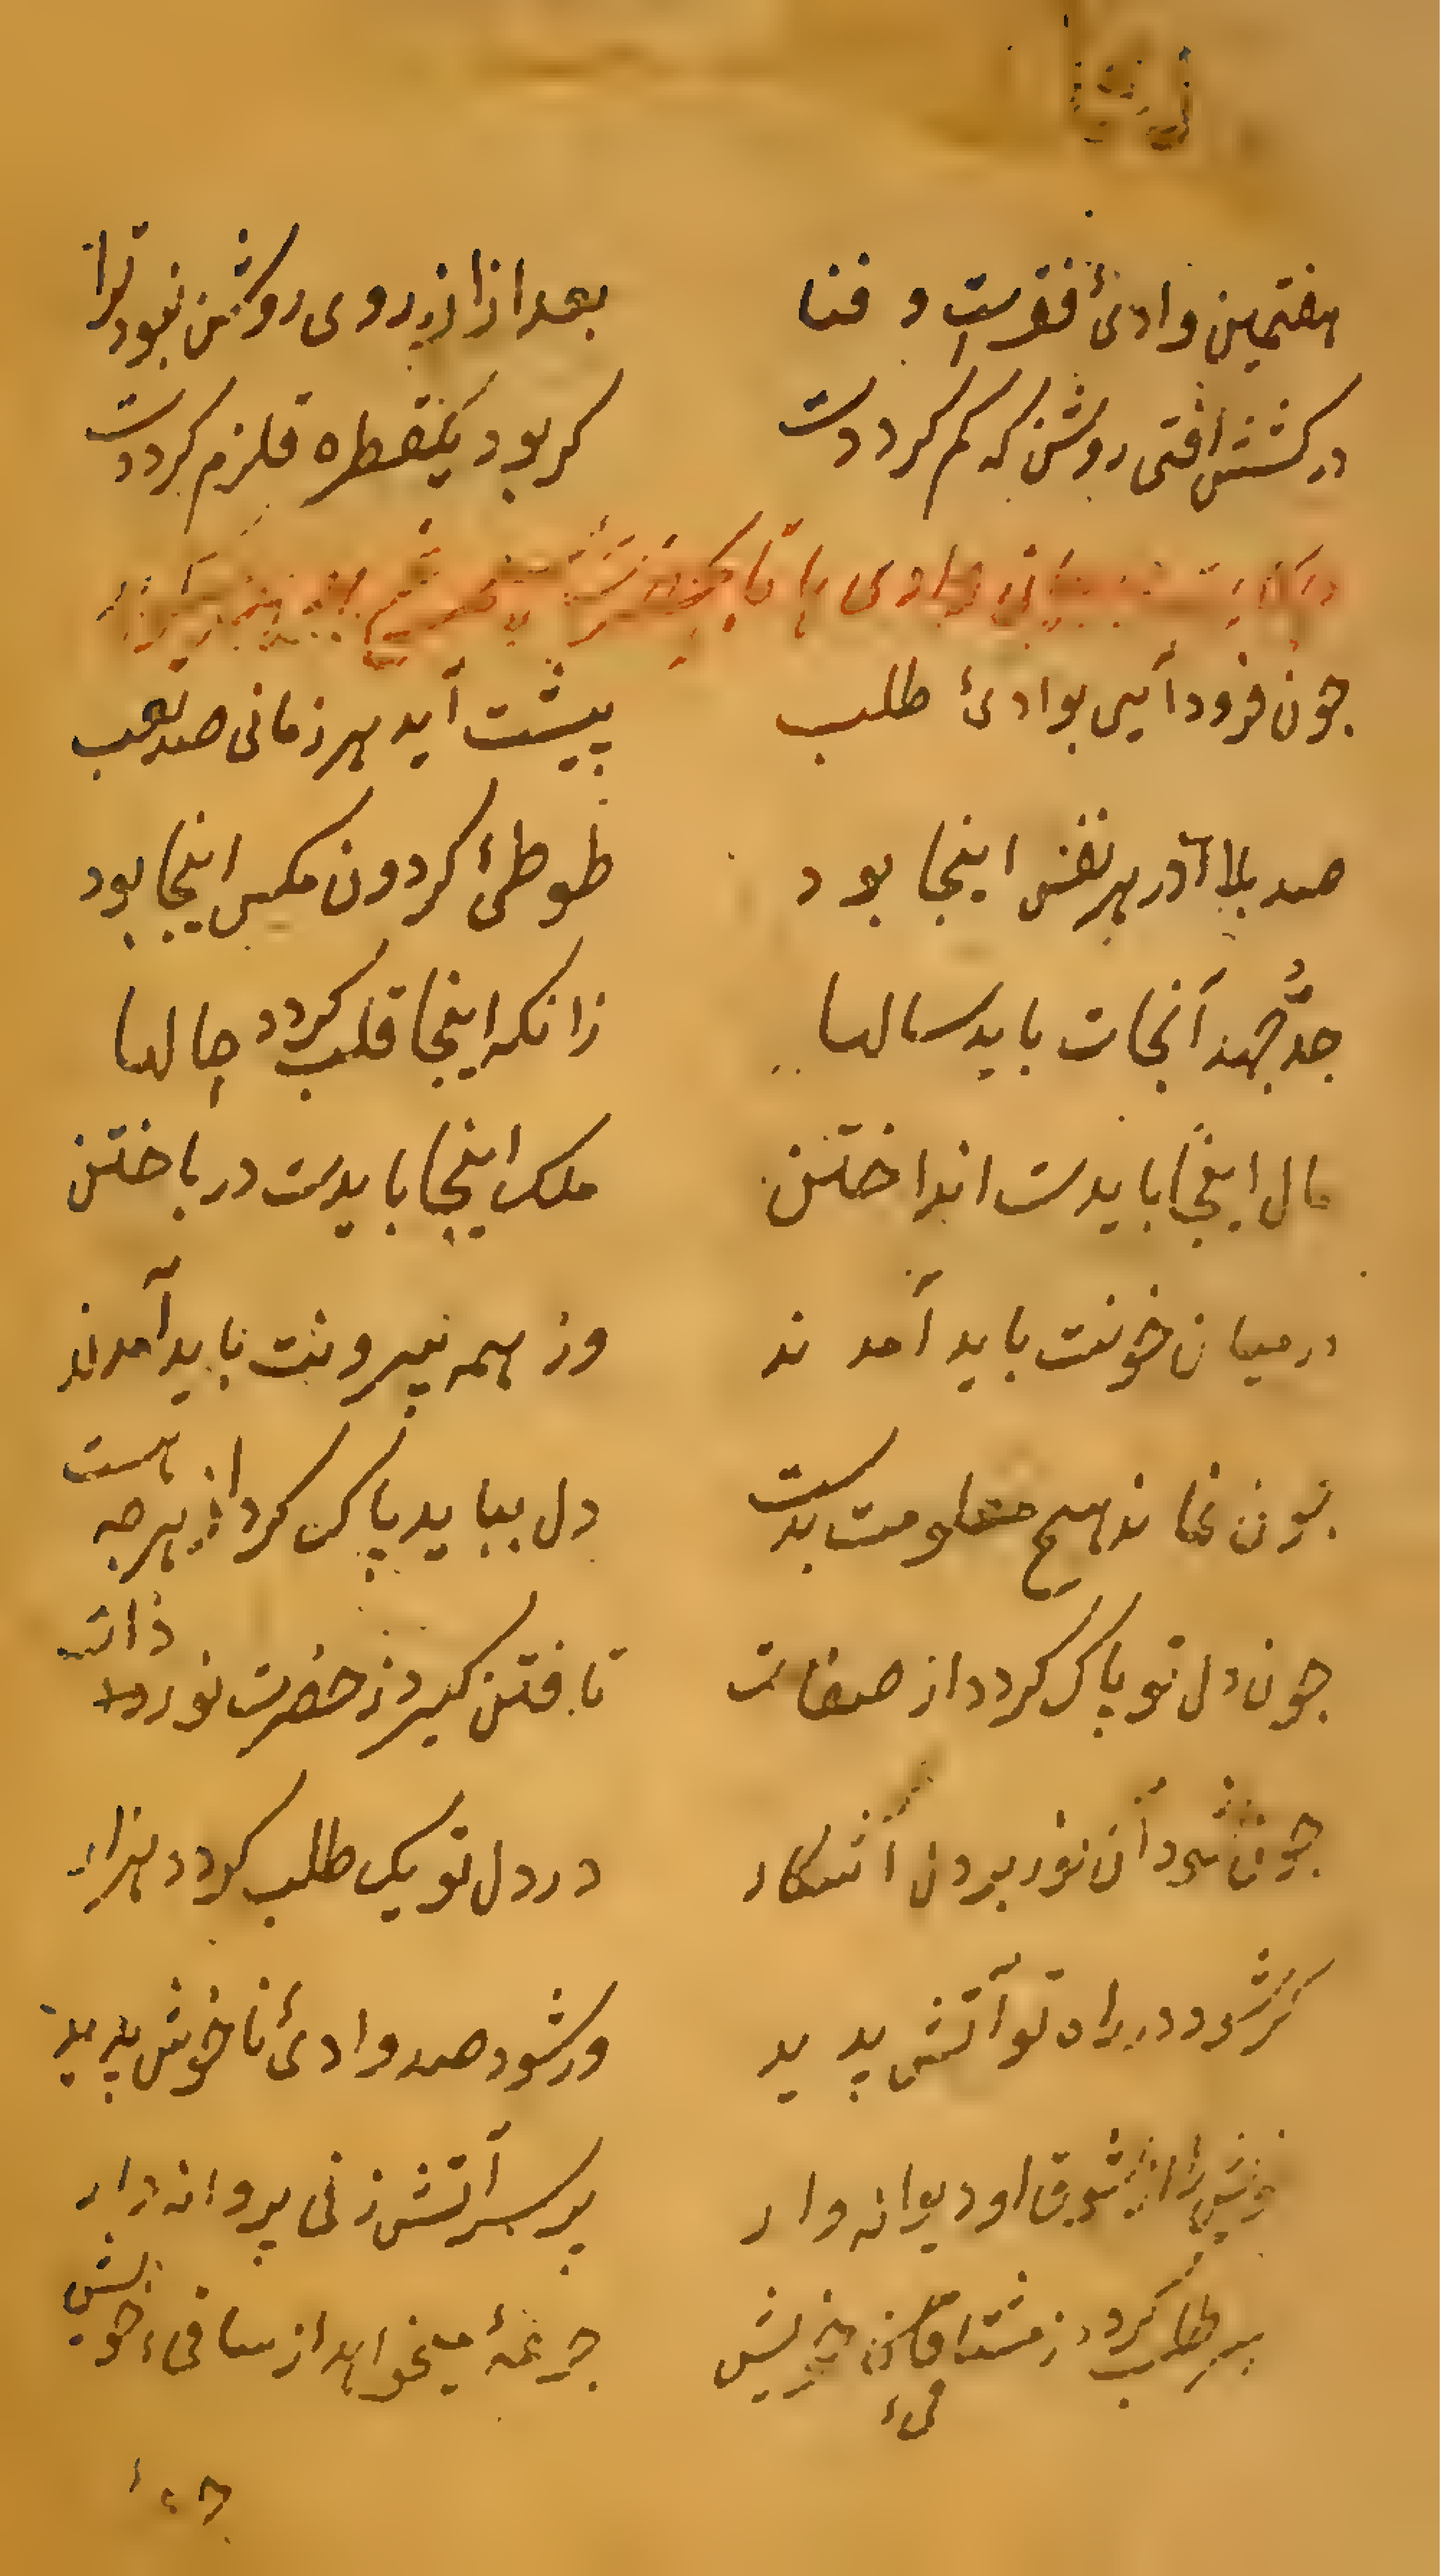 هفتمین وادئ فقرست و فنا بعد ازان روی روشن نبود ترا
در کشش افتی روشن که کم کردد ت کر بود یکقطره قلزم کرددت
جون فرود آیی بوادئ طلب پیشت آید هر زمانی صد تعب
صد بلا در هر نفس اینجا بود طوطئ کردون مکس اینجا بود
جدّ جهد آنجات باید سالها زانکه اینجا قلب کردد حالها
مال اینجا بایدت انداختن ملک اینجا بایدت درباختن
در میان خونت باید آمد ند وز همه بیرونت باید آمدند
جون نماند هیج معلومت بدست دل بباید پاک کرد از هرجه هست
جون دل تو پاک کردد از صفات تافتن کیرد ز حضرت نور ذات
جون شود آن نور بر دل آشکار در دل تو یک طلب کردد هزار
کر شود در راه تو آتش پدید ور شود صد وادئ ناخوش پدید
خویش را از شوق او دیوانه وار بر سر آتش زنی پروانه وار
سر طلب کردد ز مشتاقئ خویش جرعهٔ میخواهد از ساقیء خویش
جرعهٔ